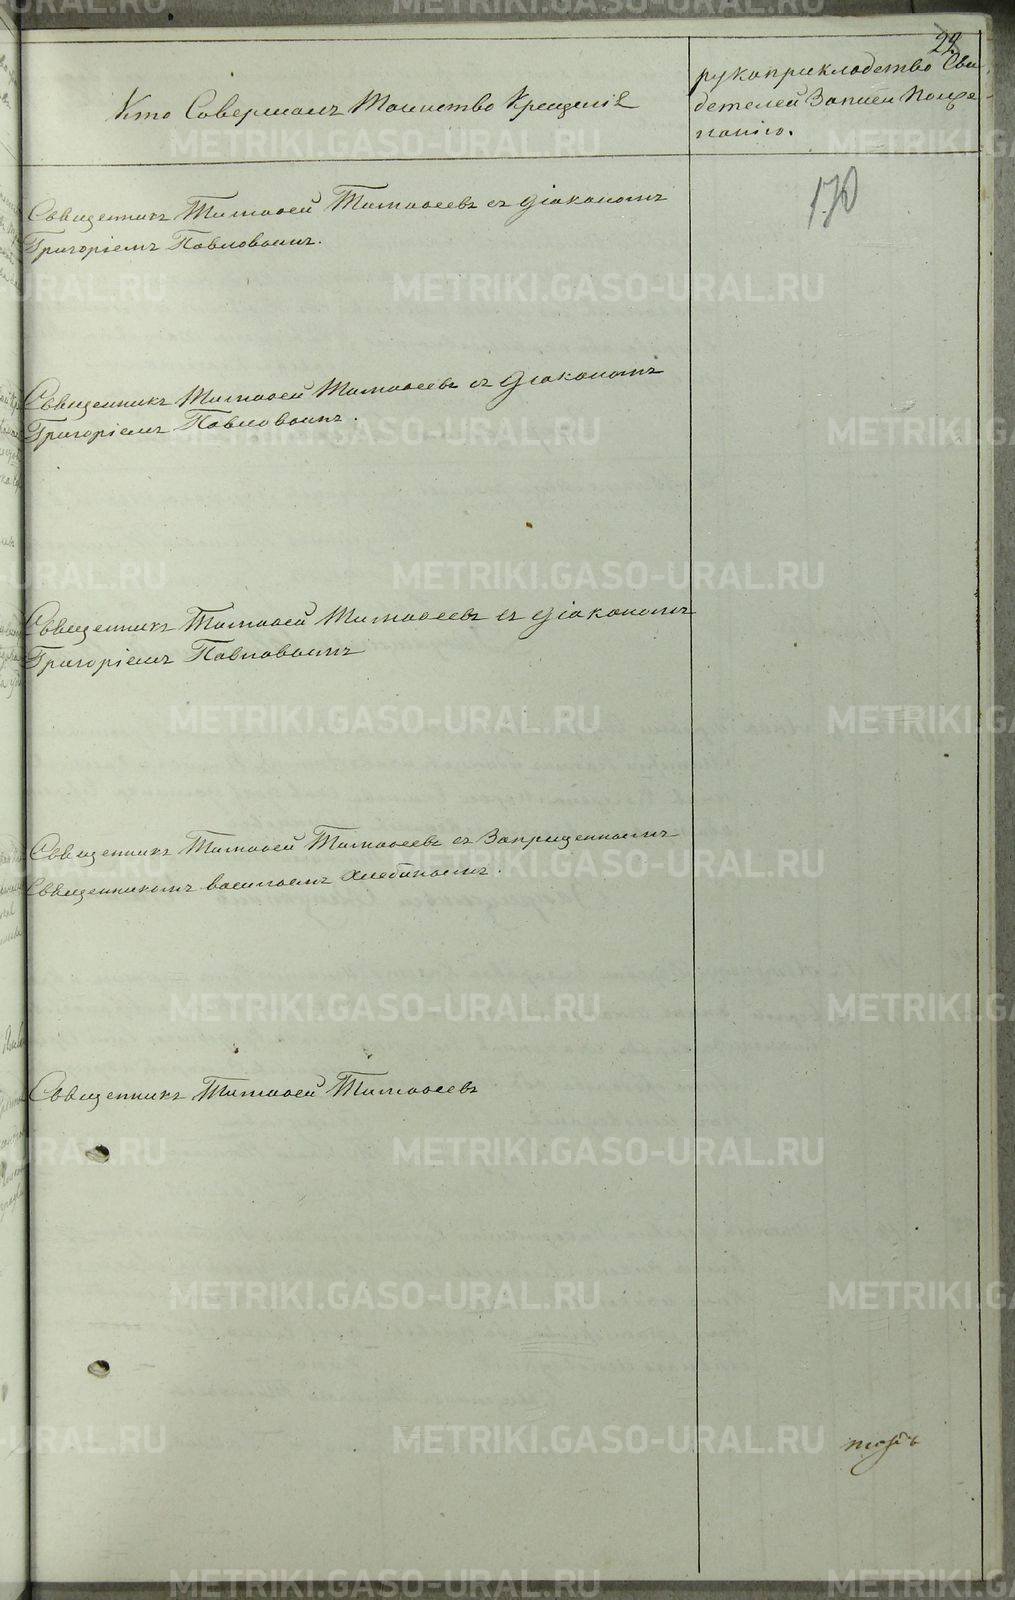 22
Кто Совершалъ Таинство Крещенiе
рукоприкладство Сви
детелей Записи Пожела
нiю.
170
Священникъ Тимофей Тимофеевъ съ дiакономъ
Григорiемъ Павловымъ.
Священникъ Тимофей Тимофеевъ съ дiакономъ
Григорiемъ Павловымъ.
Священникъ Тимофей Тимофеевъ съ дiакономъ
Григорiемъ Павловымъ
Священникъ Тимофей Тимофеевъ съ Запрещеннымъ
Священникомъ василiемъ
Священникъ Тимофей Тимофеевъ
METRIKI.GASO-URAL.RU